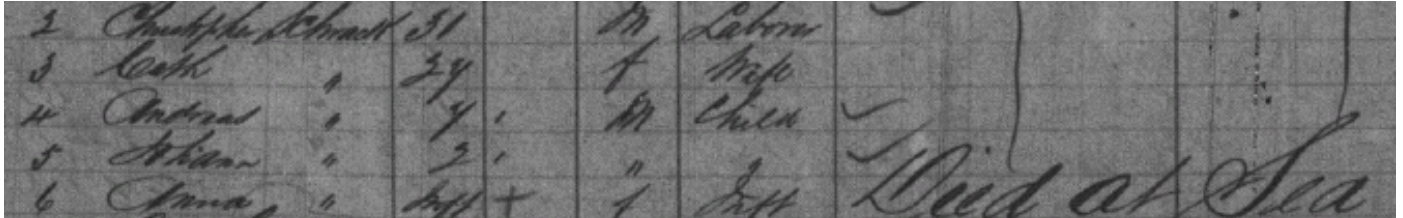 2 Christopher Schrack 31 M Laborer
3 Cath " 24 f Wife
4 Andreas " 4 M Child
5 Johann " 2 " "
6 Anna " Inft + f Inft Died at Sea